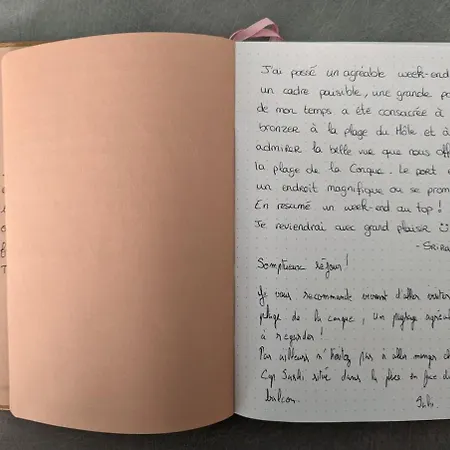 J'ai passé un agréable week-end
un cadre paisible, une grande pa
de mon temps a été consacrée à
bronzer à la plage du Môle et à
admirer la belle vue que nous off
la plage de la Conque. Le port e
un endroit magnifique ou se prom
En résumé un week-end au top !
Je reviendrai avec grand plaisir ☺
Somptueux séjour !
Je vous recommande vivement d'aller visiter
plage de la conque, un paysage agréab
à regarder !
Par ailleurs n'hésitez pas à aller manger ch
Cap Sushi situé dans la place en face du
balcon.